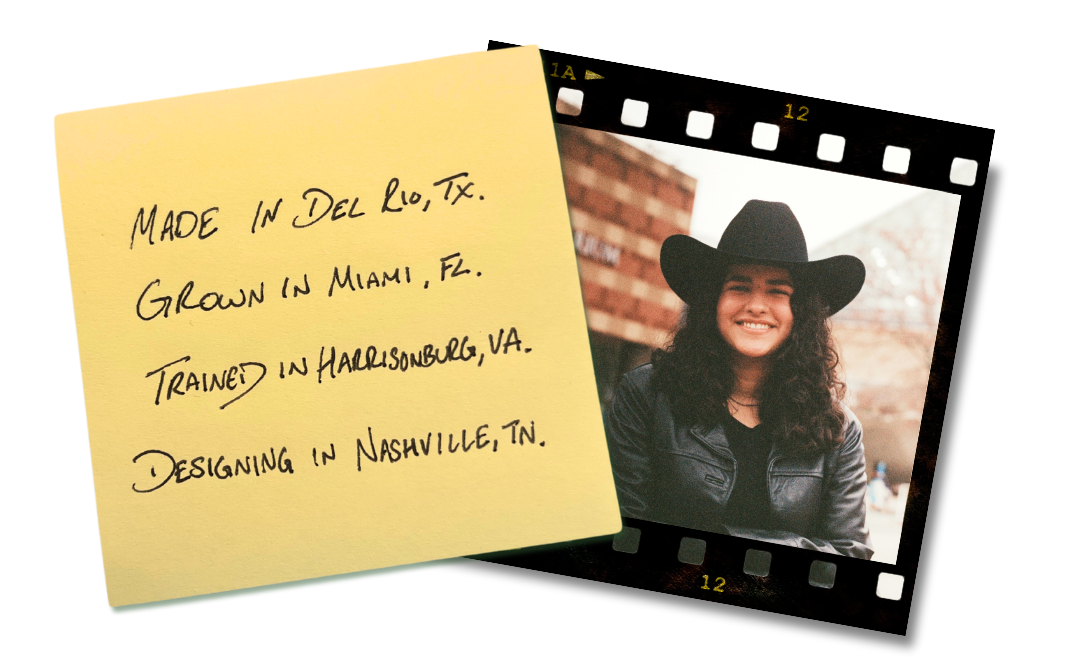 MADE IN DEL RIO, TX.
GROWN IN MIAMI, FL.
TRAINED IN HARRISONBURG, VA.
DESIGNING IN NASHVILLE, TN.
1A
12
12